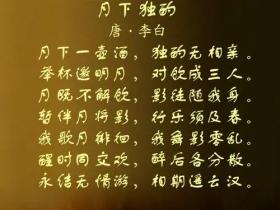 月下独酌
唐·李白
月下一壶酒，独酌无相亲。
举杯邀明月，对饮成三人。
月既不解饮，影徒随我身。
暂伴月将影，行乐须及春。
我歌月徘徊，我舞影零乱。
醒时同交欢，醉后各分散。
永结无情游，相期邈云汉。